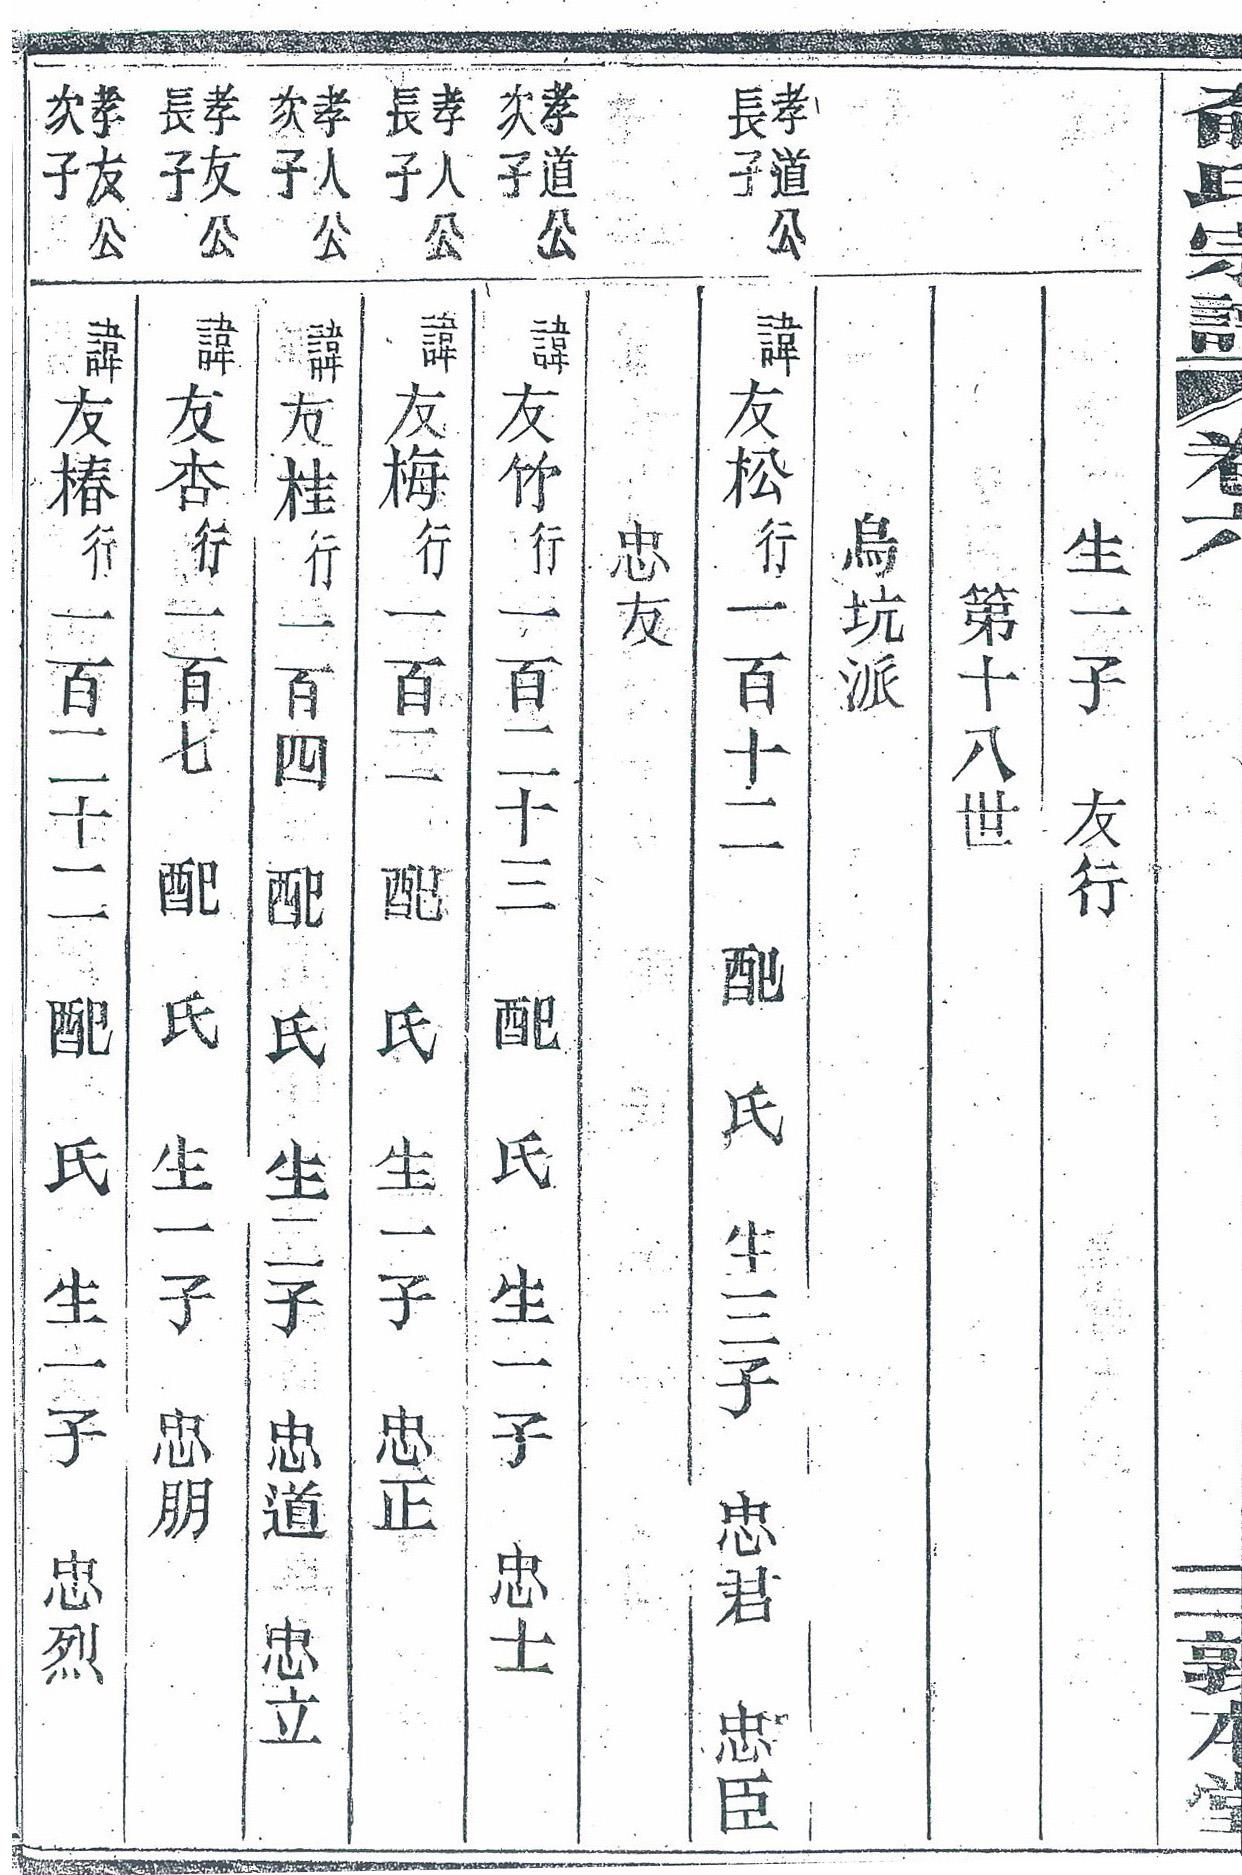 俞氏宗譜 卷六 三 敦本堂
生一子 友行
第十八世
烏坑派
孝道公
長子
諱友松行一百十二 配 氏 生三子 忠君 忠臣
忠友
孝道公
次子
諱友竹行一百二十三 配 氏 生一子 忠士
孝人公
長子
諱友梅行一百二 配 氏 生一子 忠正
孝人公
次子
諱友桂行一百四 配 氏 生二子 忠道 忠立
孝友公
長子
諱友杏行一百七 配 氏 生一子 忠朋
孝友公
次子
諱友椿行一百二十二 配 氏 生一子 忠烈